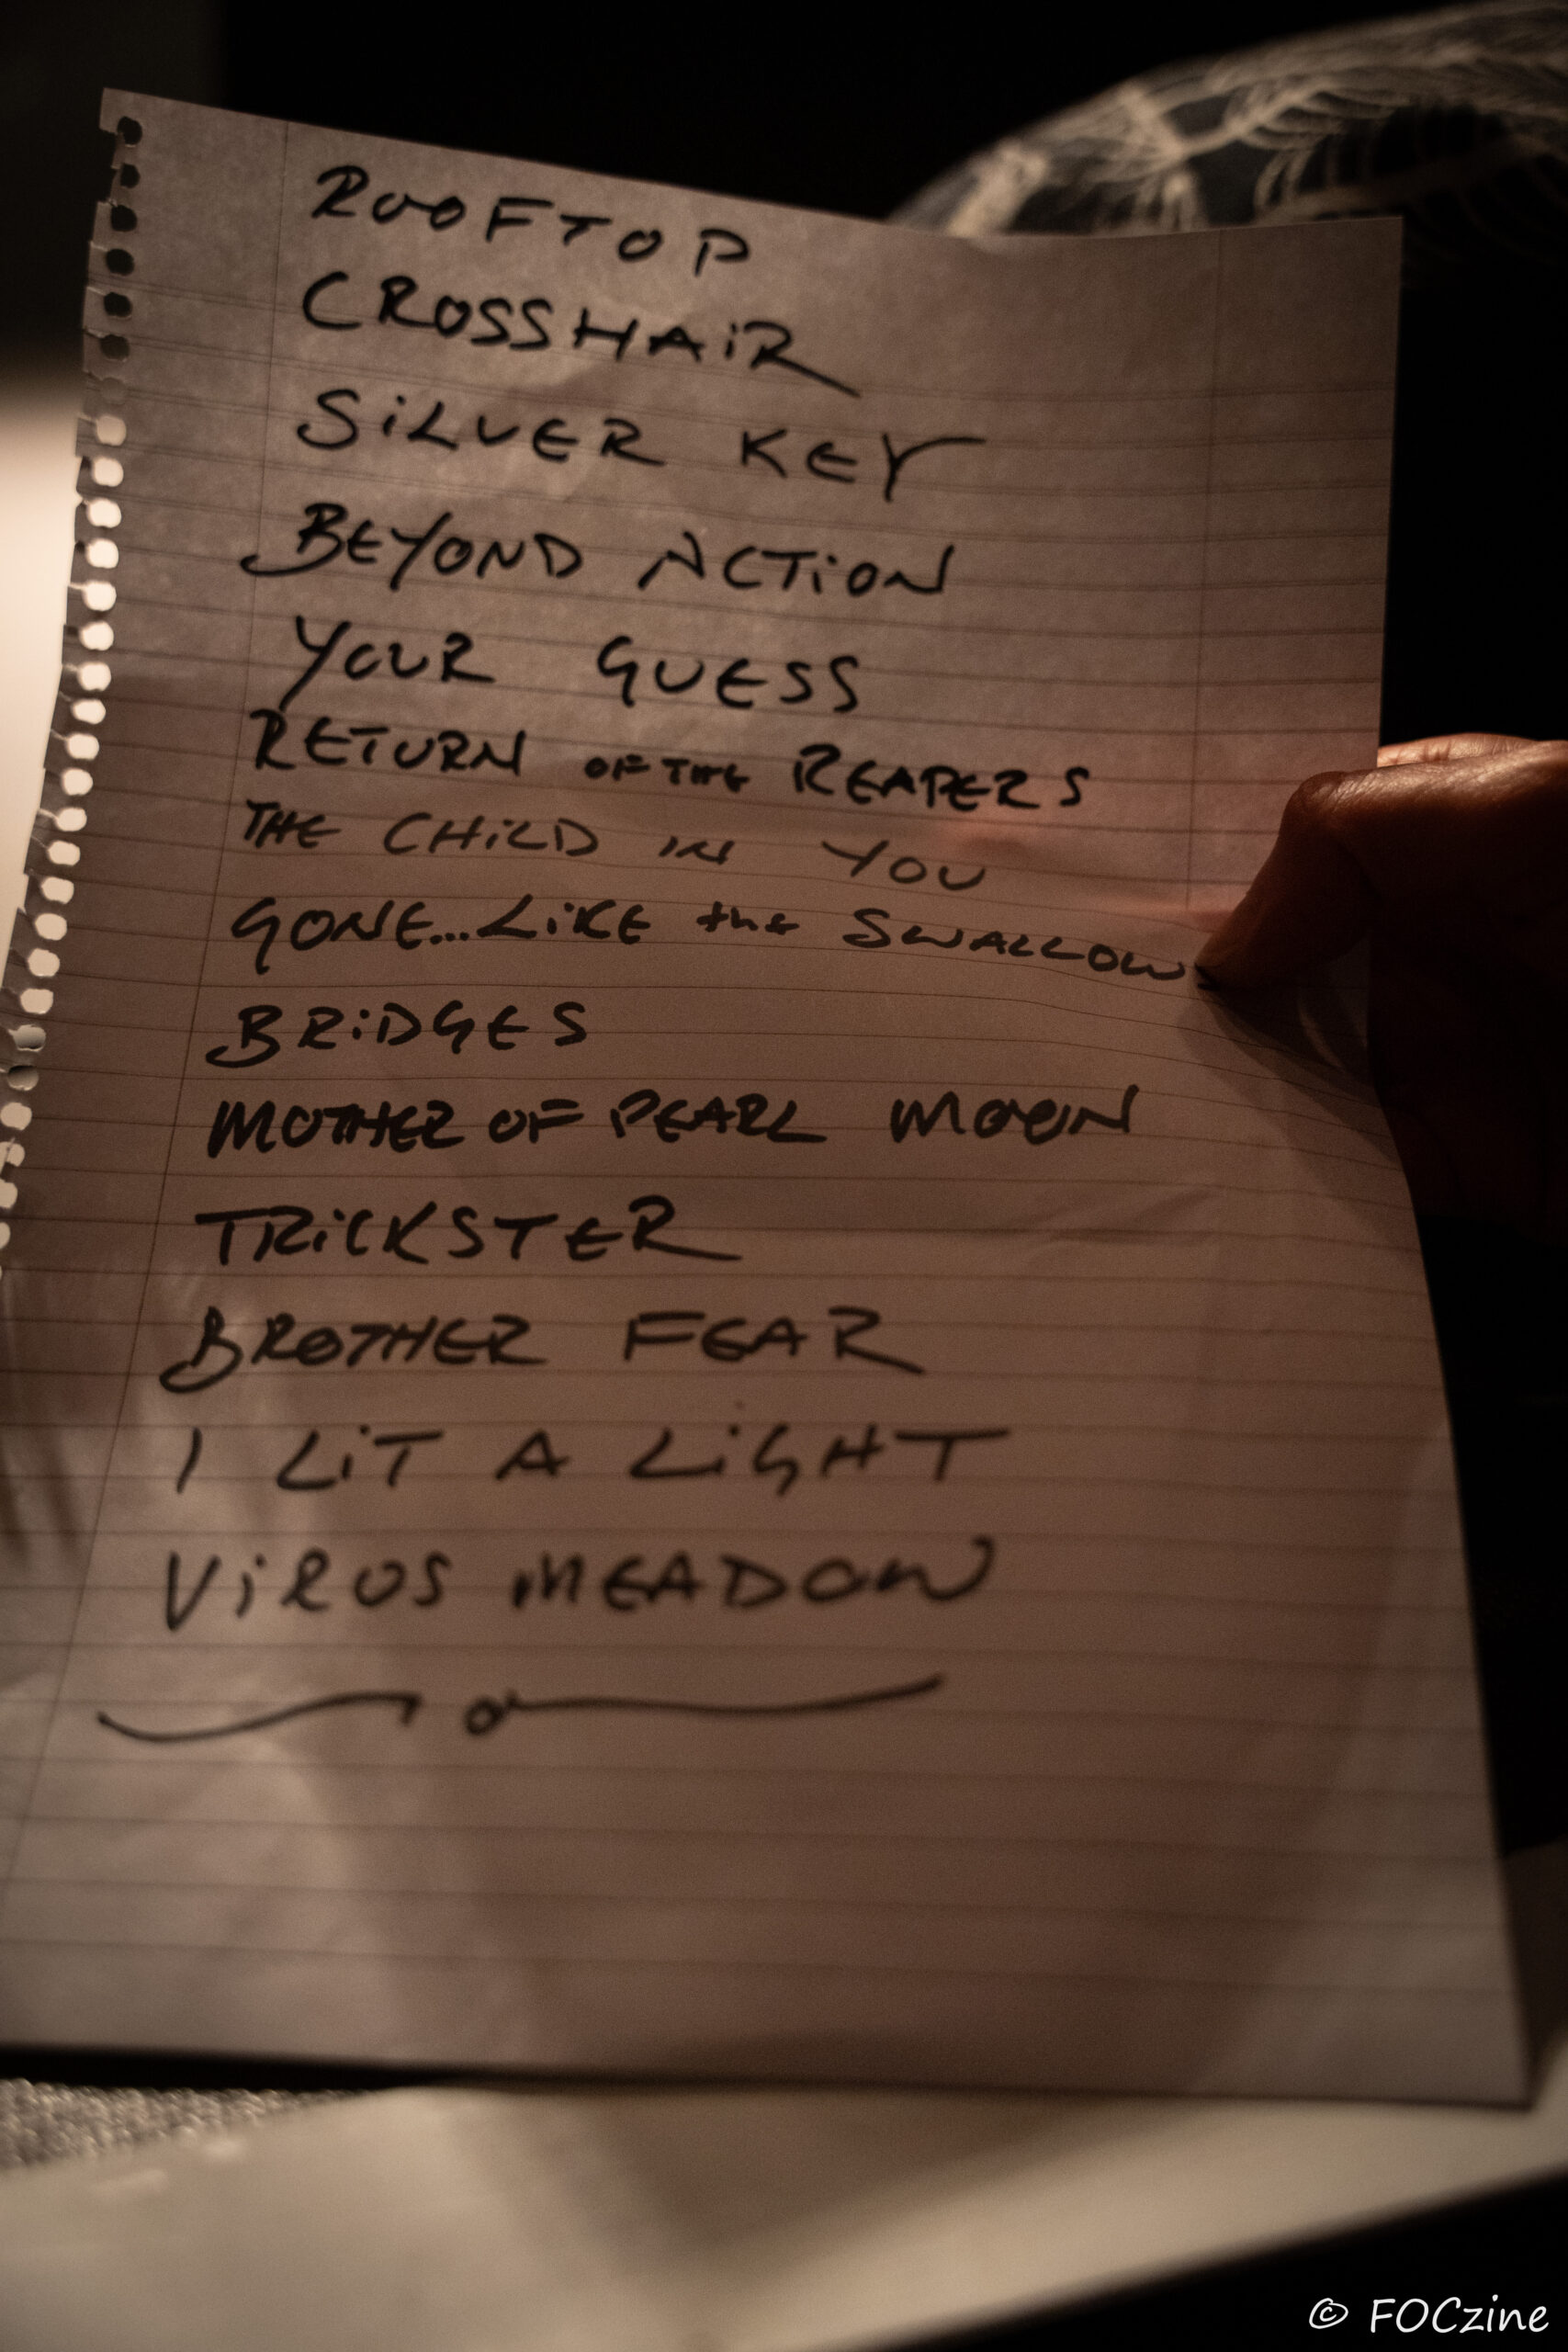 ROOFTOP
CROSSHAiR
SiLVER KEY
BEYOND ACTiON
YOUR GUESS
RETURN OF THE REAPERS
THE CHiLD iN YOU
GONE...LiKE the SWALLOW
BRiDGES
MOTHER OF PEARL MOON
TRiCKSTER
BROTHER FEAR
I LiT A LiGHT
ViRUS MEADOW
© FOCzine